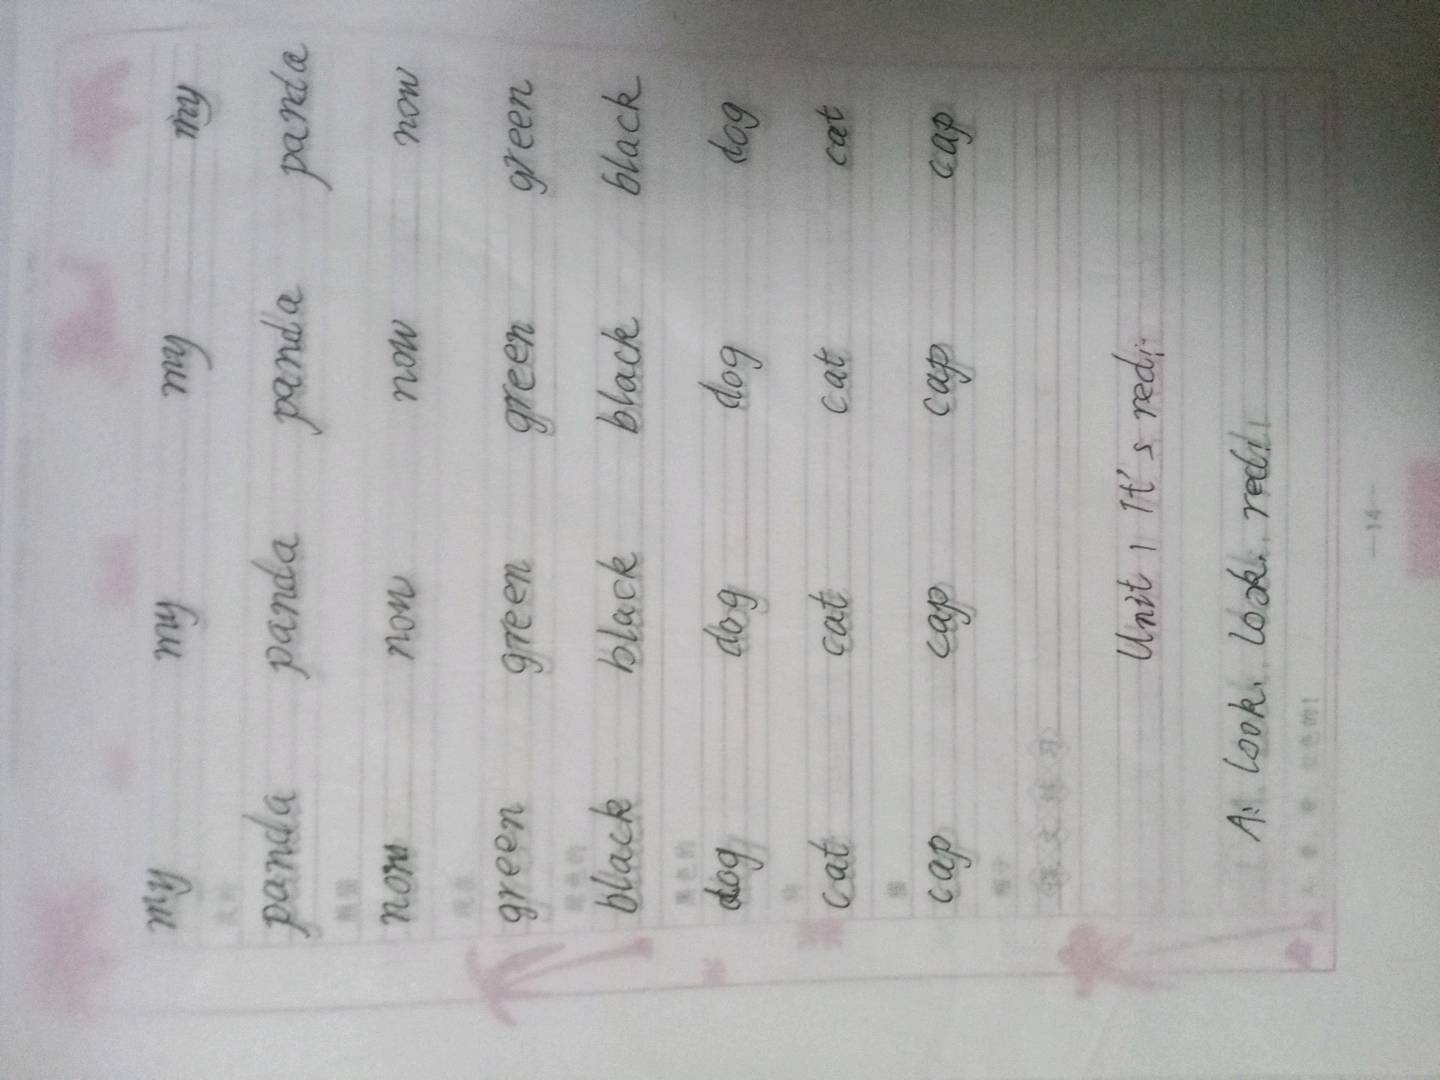 my my my my
panda panda panda panda
熊猫
now now now now
现在
green green green green
绿色的
black black black black
黑色的
dog dog dog dog
狗
cat cat cat cat
猫
cap cap cap cap
帽子
课文练习
Unit 1 It's red!
A: Look. Look. red!
—14—